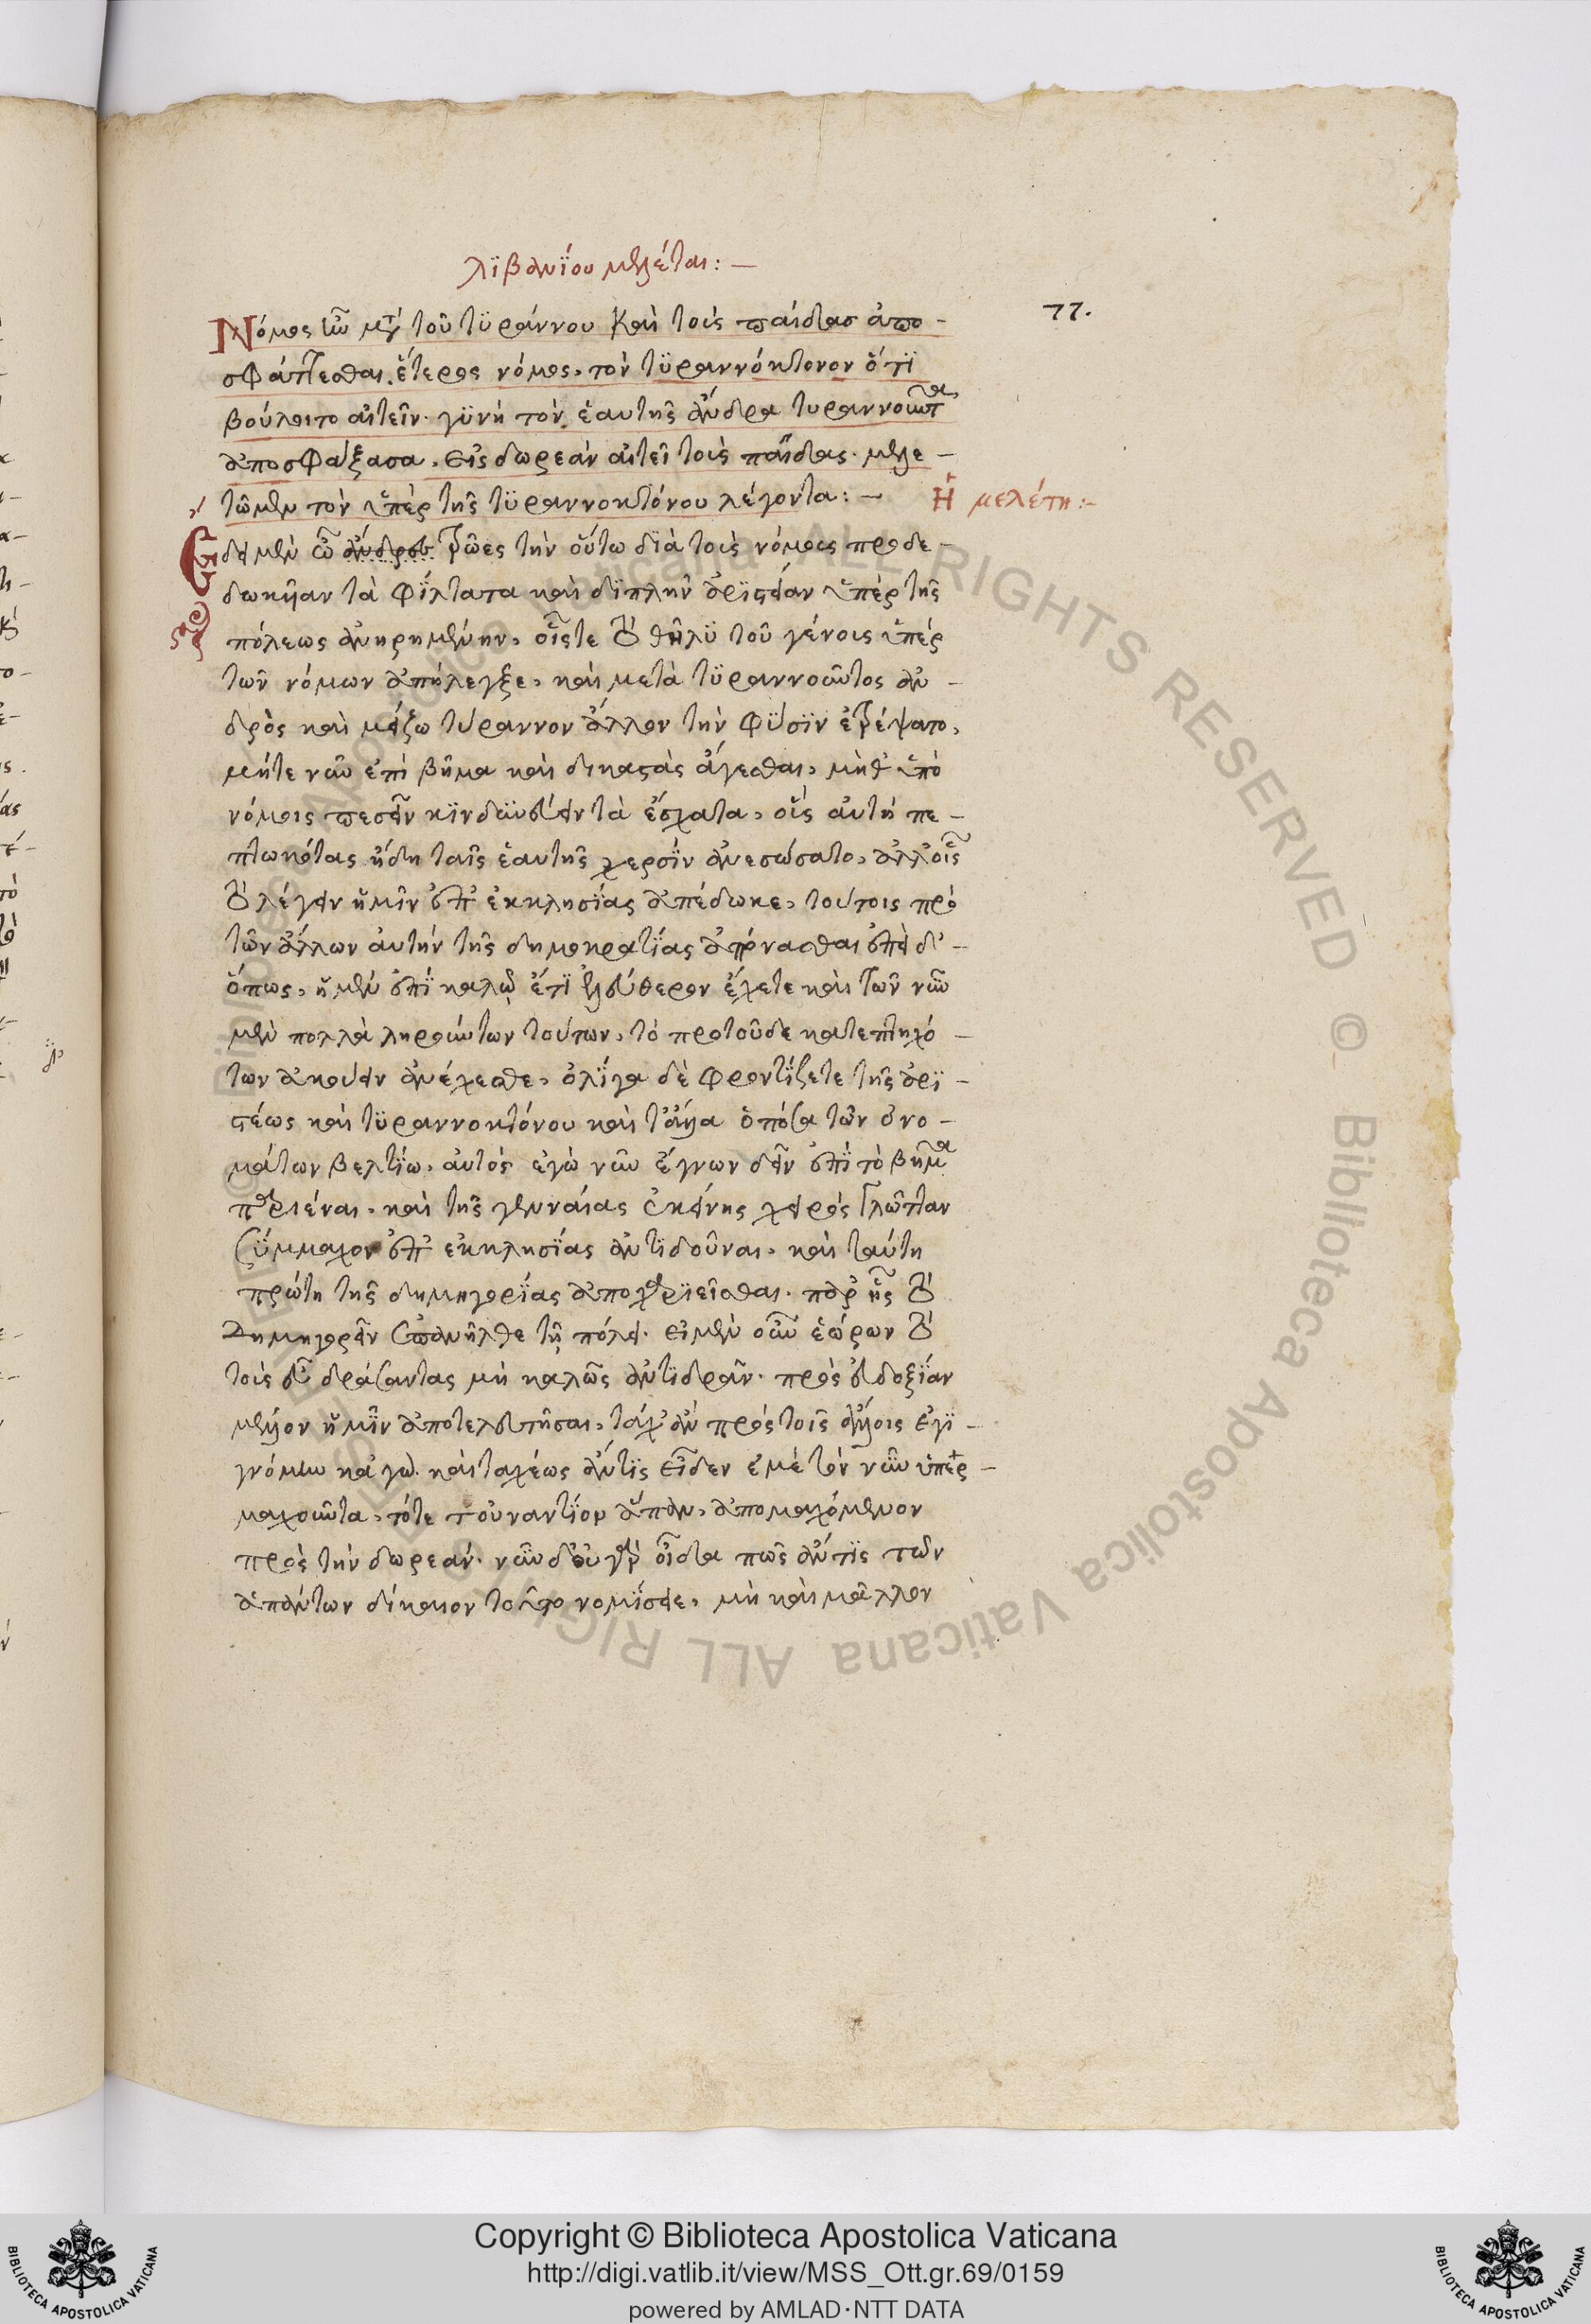 λϊβανΐου μελέται: —
77.
Νόμος ἦν μετὰ τοῦ τϋράννου καὶ τοὺς παίδας ἀπο-
σφάττεσθαι. ἕτερος νόμος, τὸν τϋραννόκτονον ὅ τϊ
βούλοιτο αἰτεῖν. γϋνὴ τὸν ἑαυτῆς ἄνδρα τυραννοῦντα
ἀποσφάξασα, εἰς δωρεὰν αἰτεῖ τοὺς παῖδας. μελε-
τῶμεν τὸν ὑπὲρ τῆς τϋραννοκτόνου λέγοντα: —
Ἡ μελέτη:-
Ἔδει μὲν ὦ ἄνδρες τὴν οὕτω διὰ τοὺς νόμους προδε-
δωκυῖαν τὰ φΐλτατα καὶ διπλῆν ἀρϊστείαν ὑπὲρ τῆς
πόλεως ἀνῃρημένην, οἷς τε τὸ θῆλϋ τοῦ γένους ὑπὲρ
τῶν νόμων ἀπήλεγξε, καὶ μετὰ τϋραννοῦντος ἀν-
δρὸς καὶ μείζω τύραννον ἄλλον τὴν φϋσϊν ἐτρέψατο,
μήτε νῦν ἐπὶ βῆμα καὶ δικαστὰς ἄγεσθαι, μήθ' ὑπὸ
νόμοις πεσεῖν κϊνδϋνεύειν τὰ ἔσχατα, οὓς αὐτὴ πε-
πτωκότας ἤδη ταῖς ἑαυτῆς χερσῒν ἀνεσώσατο, ἀλλ' οἷς
τὸ λέγειν ἡμῖν ἐπ' ἐκκλησΐας ἀπέδωκε, τούτοις πρὸ
τῶν ἄλλων αὐτὴν τῆς δημοκρατΐας ἀπόνασθαι ἐπεὶ δ'
ὅπως, ἡμῖν ἐπῒ καλῷ ἔτι ἐλεύθερον ἔχετε καὶ τῶν νῦν
μὲν πολλὰ ληρούντων τούτων, τὸ προτοῦδε κατεπτηχό-
των ἀκούειν ἀνέχεσθε, ὀλΐγα δὲ φροντΐζετε τῆς ἀρϊ-
στέως καὶ τϋραννοκτόνου καὶ τἄλλα ὁπόσα τῶν ὀνο-
μάτων βελτΐω, αὐτὸς ἐγὼ νῦν ἔγνων δεῖν ἐπῒ τὸ βῆμα
παριέναι, καὶ τῆς γενναίας ἐκείνης χειρὸς γλῶτταν
σΰμμαχον ἐπ' ἐκκλησΐας ἀντϊδοῦναι, καὶ ταύτῃ
πρώτῃ τῆς δημηγορΐας ἀποχαρϊεῖσθαι. παρ' ἧς τὸ
δημηγορεῖν ἐπανῆλθε τῇ πόλει. εἰ μὲν οὖν ἑώρων τὸ
τοὺς εὖ δράσαντας μὴ καλῶς ἀντϊδρᾶν. πρὸς εὐδοξΐαν
μέλλον ἡμῖν ἀποτελευτῆσαι, τάχ' ἂν πρὸς τοῖς ἄλλοις ἐγϊ-
γνόμην κἀγώ. καὶ ταχέως ἄν τϊς εἶδεν ἐμὲ τὸν νῦν ὑπερ-
μαχοῦντα, τότε τοὐναντΐον ἅπαν, ἀπομαχόμενον
πρὸς τὴν δωρεάν. νῦν δ' οὐ γὰρ οἶδα πῶς ἄν τϊς τῶν
ἁπάντων δίκαιον τοῦτο νομΐσειε, μὴ καὶ μᾶλλον
Copyright © Biblioteca Apostolica Vaticana
http://digi.vatlib.it/view/MSS_Ott.gr.69/0159
powered by AMLAD·NTT DATA